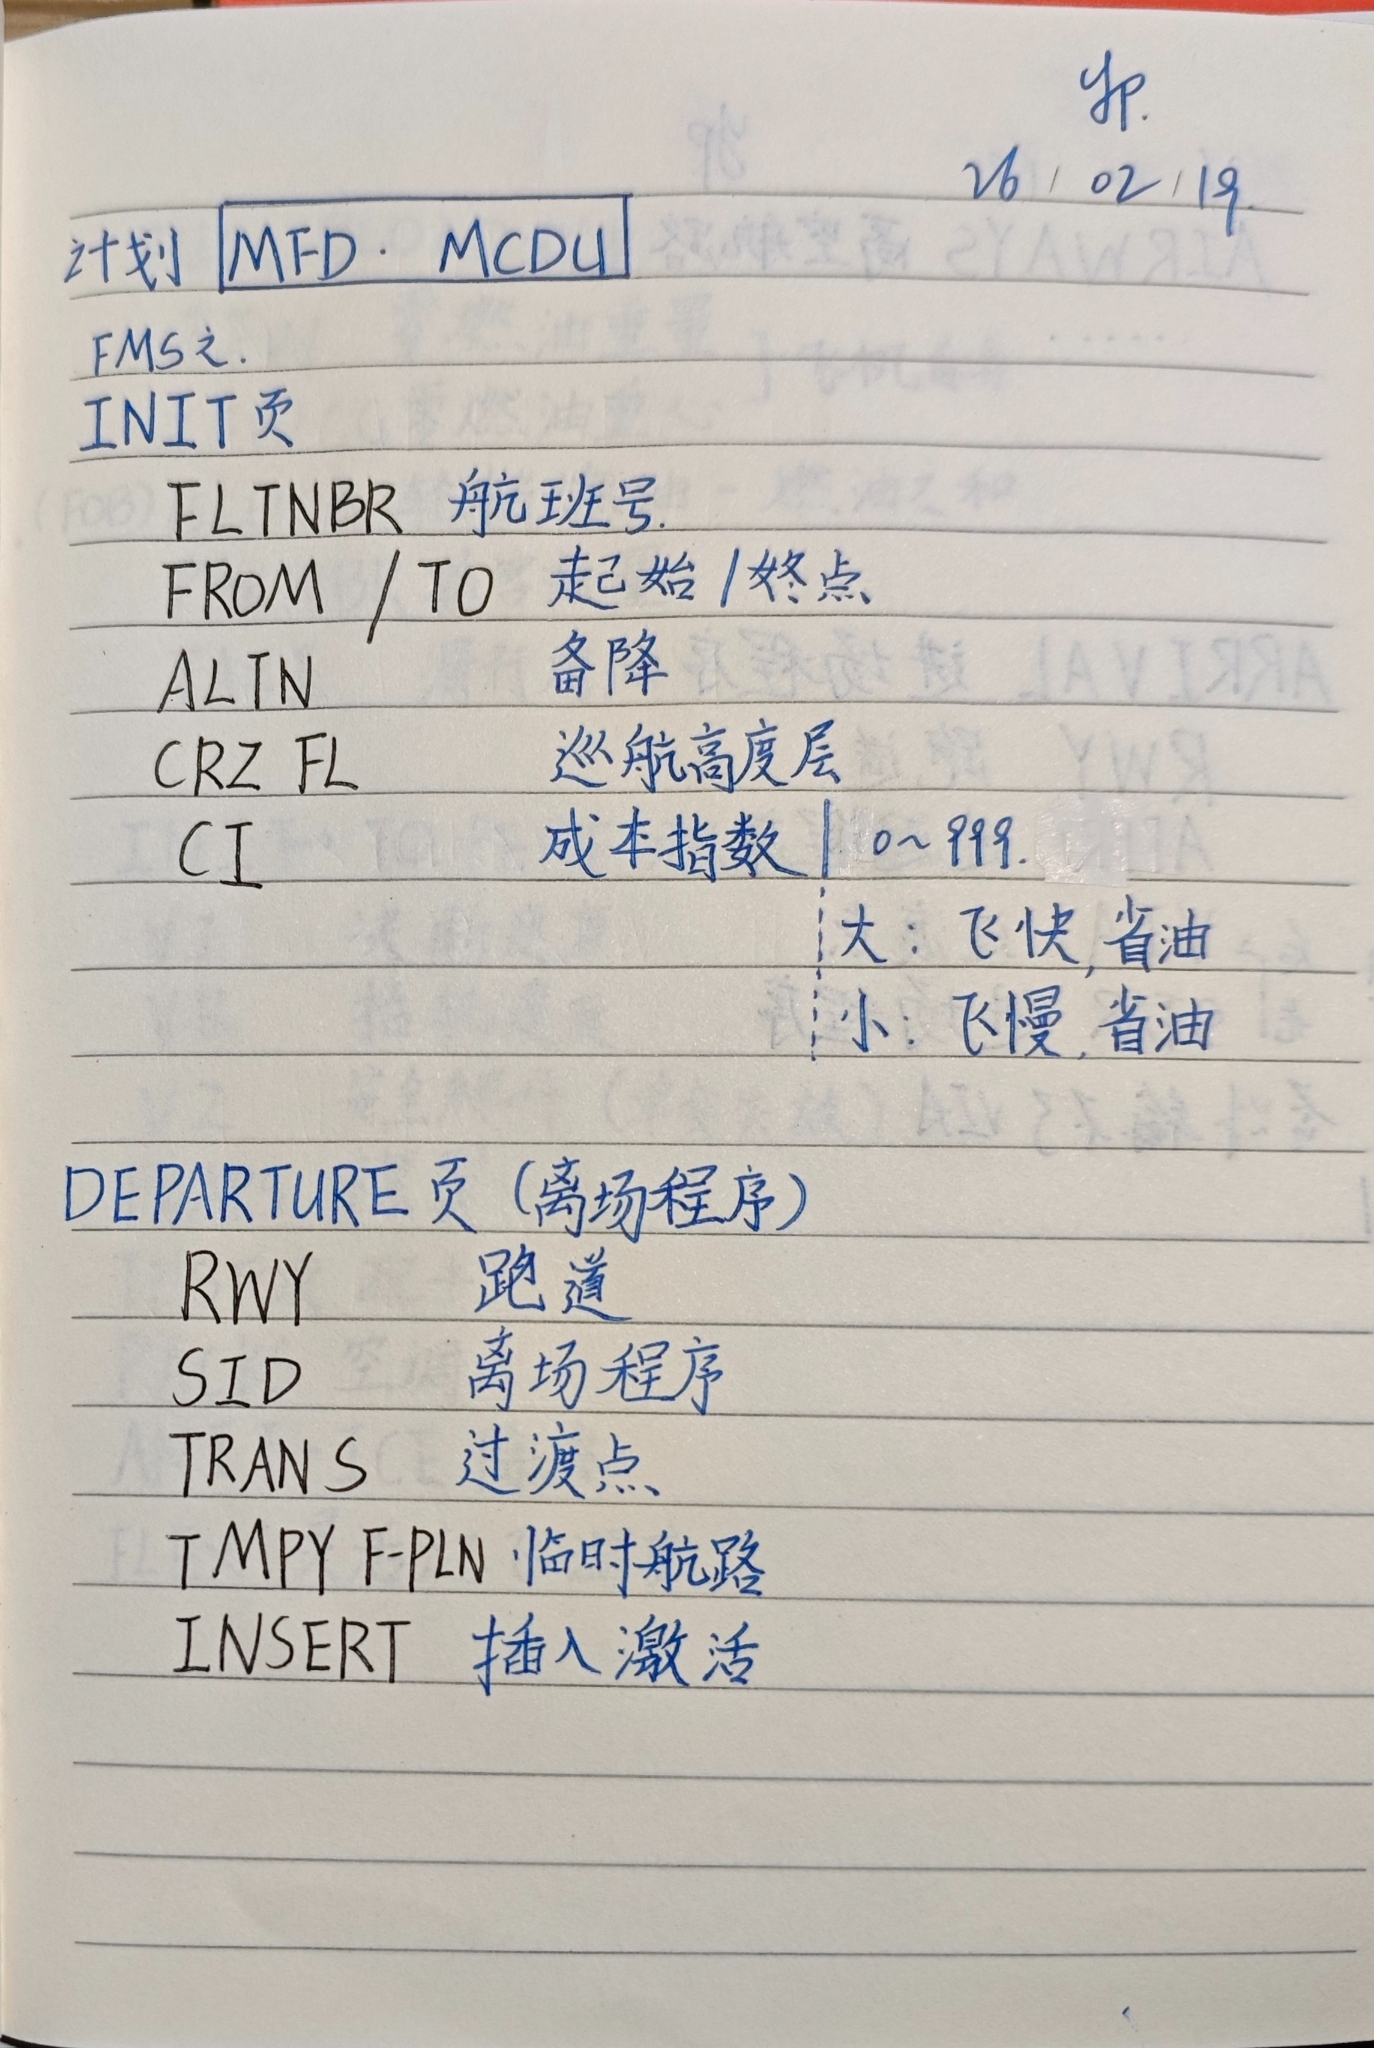 yp.
26/02/19.
计划 MFD · MCDU
FMS之.
INIT页
FLTNBR 航班号.
FROM / TO 起始/终点
ALTN 备降
CRZ FL 巡航高度层
CI 成本指数 0~999.
大: 飞快,省油
小: 飞慢,省油
DEPARTURE页(离场程序)
RWY 跑道
SID 离场程序
TRANS 过渡点
TMPY F-PLN 临时航路
INSERT 插入激活